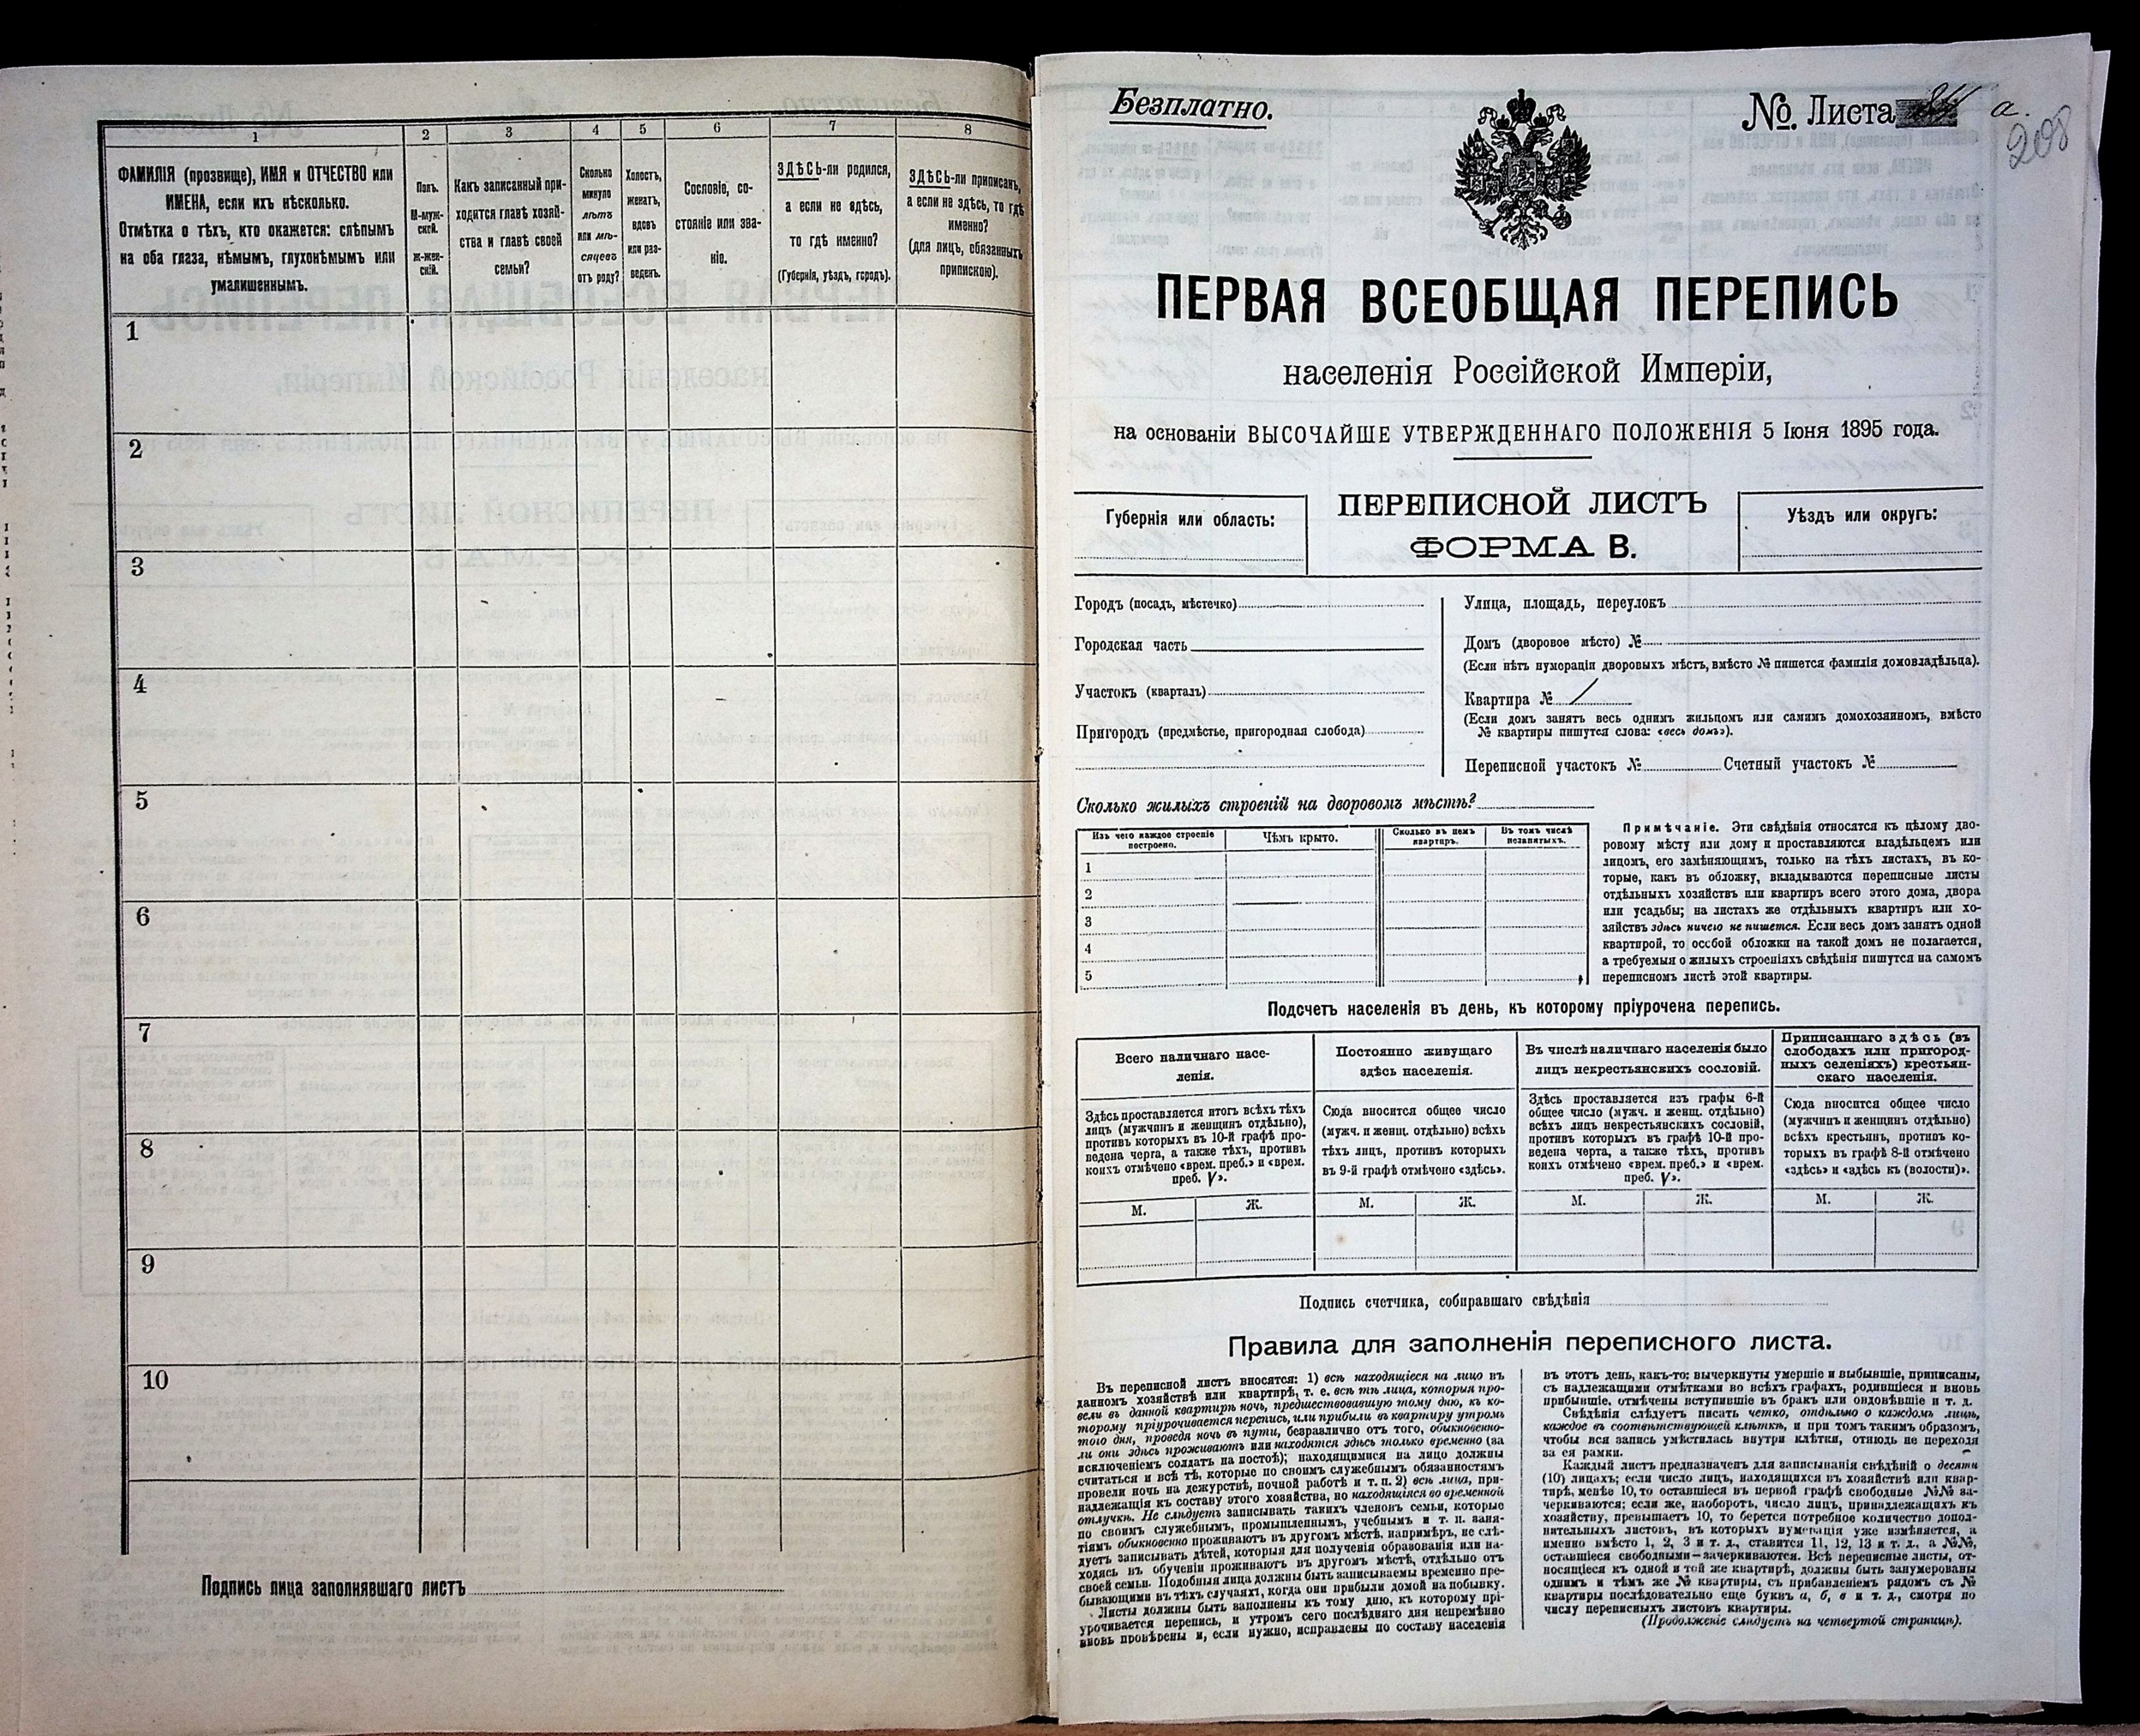 1
2
3
4
5
6
7
8
ФАМИЛІЯ (прозвище), ИМЯ и ОТЧЕСТВО или
ИМЕНА, если ихъ нѣсколько.
Отмѣтка о тѣхъ, кто окажется: слѣпымъ
на оба глаза, нѣмымъ, глухонѣмымъ или
умалишеннымъ.
Полъ.
М-муж-
ской.
ж-жен-
скій.
Какъ записанный при-
ходится главѣ хозяй-
ства и главѣ своей
семьи?
Сколько
минуло
лѣтъ
или мѣ-
сяцевъ
отъ роду?
Холостъ,
женатъ,
вдовъ
или раз-
веденъ.
Сословіе, со-
стояніе или зва-
ніе.
ЗДѢСЬ-ли родился,
а если не здѣсь,
то гдѣ именно?
(Губернія, уѣздъ, городъ).
ЗДѢСЬ-ли приписанъ,
а если не здѣсь, то гдѣ
именно?
(для лицъ, обязанныхъ
припискою).
1
2
3
4
5
6
7
8
9
10
Подпись лица заполнявшаго листъ
Безплатно.
№ Листа а.
208
ПЕРВАЯ ВСЕОБЩАЯ ПЕРЕПИСЬ
населенія Россійской Имперіи,
на основаніи ВЫСОЧАЙШЕ УТВЕРЖДЕННАГО ПОЛОЖЕНІЯ 5 Іюня 1895 года.
Губернія или область:
ПЕРЕПИСНОЙ ЛИСТЪ
ФОРМА В.
Уѣздъ или округъ:
Городъ (посадъ, мѣстечко)
Городская часть
Участокъ (кварталъ)
Пригородъ (предмѣстье, пригородная слобода)
Улица, площадь, переулокъ
Домъ (дворовое мѣсто) №
(Если нѣтъ нумераціи дворовыхъ мѣстъ, вмѣсто № пишется фамилія домовладѣльца).
Квартира №
(Если домъ занятъ весь однимъ жильцомъ или самимъ домохозяиномъ, вмѣсто
№ квартиры пишутся слова: «весь домъ»).
Переписной участокъ № Счетный участокъ №
Сколько жилыхъ строеній на дворовомъ мѣстѣ?
Изъ чего каждое строеніе
построено.
Чѣмъ крыто.
Сколько въ немъ
квартиръ.
Въ томъ числѣ
незанятыхъ.
1
2
3
4
5
Примѣчаніе. Эти свѣдѣнія относятся къ цѣлому дво-
ровому мѣсту или дому и проставляются владѣльцемъ или
лицомъ, его замѣняющимъ, только на тѣхъ листахъ, въ ко-
торые, какъ въ обложку, вкладываются переписные листы
отдѣльныхъ хозяйствъ или квартиръ всего этого дома, двора
или усадьбы; на листахъ же отдѣльныхъ квартиръ или хо-
зяйствъ здѣсь ничего не пишется. Если весь домъ занятъ одной
квартирой, то особой обложки на такой домъ не полагается,
а требуемыя о жилыхъ строеніяхъ свѣдѣнія пишутся на самомъ
переписномъ листѣ этой квартиры.
Подсчетъ населенія въ день, къ которому пріурочена перепись.
Всего наличнаго насе-
ленія.
Постоянно живущаго
здѣсь населенія.
Въ числѣ наличнаго населенія было
лицъ некрестьянскихъ сословій.
Приписаннаго здѣсь (въ
слободахъ или пригород-
ныхъ селеніяхъ) крестьян-
скаго населенія.
Здѣсь проставляется итогъ всѣхъ тѣхъ
лицъ (мужчинъ и женщинъ отдѣльно),
противъ которыхъ въ 10-й графѣ про-
ведена черта, а также тѣхъ, противъ
коихъ отмѣчено «врем. преб.» и «врем.
преб. V».
Сюда вносится общее число
(мужч. и женщ. отдѣльно) всѣхъ
тѣхъ лицъ, противъ которыхъ
въ 9-й графѣ отмѣчено «здѣсь».
Здѣсь проставляется изъ графы 6-й
общее число (мужч. и женщ. отдѣльно)
всѣхъ лицъ некрестьянскихъ сословій,
противъ которыхъ въ графѣ 10-й про-
ведена черта, а также тѣхъ, противъ
коихъ отмѣчено «врем. преб.» и «врем.
преб. V».
Сюда вносится общее число
(мужчинъ и женщинъ отдѣльно)
всѣхъ крестьянъ, противъ ко-
торыхъ въ графѣ 8-й отмѣчено
«здѣсь» и «здѣсь къ (волости)».
М. Ж. М. Ж. М. Ж. М. Ж.
Подпись счетчика, собиравшаго свѣдѣнія
Правила для заполненія переписного листа.
Въ переписной листъ вносятся: 1) всѣ находящіеся на лицо въ
данномъ хозяйствѣ или квартирѣ, т. е. всѣ тѣ лица, которыя про-
вели въ данной квартирѣ ночь, предшествовавшую тому дню, къ ко-
торому пріурочивается перепись, или прибыли въ квартиру утромъ
того дня, проведя ночь въ пути, безразлично отъ того, обыкновенно-
ли они здѣсь проживаютъ или находятся здѣсь только временно (за
исключеніемъ солдатъ на постоѣ); находящимися на лицо должны
считаться и всѣ тѣ, которые по своимъ служебнымъ обязанностямъ
провели ночь на дежурствѣ, ночной работѣ и т. п. 2) всѣ лица, при-
надлежащія къ составу этого хозяйства, но находящіяся во временной
отлучкѣ. Не слѣдуетъ записывать такихъ членовъ семьи, которые
по своимъ служебнымъ, промышленнымъ, учебнымъ и т. п. заня-
тіямъ обыкновенно проживаютъ въ другомъ мѣстѣ, напримѣръ, не слѣ-
дуетъ записывать дѣтей, которыя для полученія образованія или на-
ходясь въ обученіи проживаютъ въ другомъ мѣстѣ, отдѣльно отъ
своей семьи. Подобныя лица должны быть записываемы временно пре-
бывающими въ тѣхъ случаяхъ, когда они прибыли домой на побывку.
Листы должны быть заполнены къ тому дню, къ которому прі-
урочивается перепись, и утромъ сего послѣдняго дня непремѣнно
вновь провѣрены и, если нужно, исправлены по составу населенія
въ этотъ день, какъ-то: вычеркнуты умершіе и выбывшіе, приписаны,
съ надлежащими отмѣтками во всѣхъ графахъ, родившіеся и вновь
прибывшіе, отмѣчены вступившіе въ бракъ или овдовѣвшіе и т. д.
Свѣдѣнія слѣдуетъ писать четко, отдѣльно о каждомъ лицѣ,
каждое въ соотвѣтствующей клѣткѣ, и при томъ такимъ образомъ,
чтобы вся запись умѣстилась внутри клѣтки, отнюдь не переходя
за ея рамки.
Каждый листъ предназначенъ для записыванія свѣдѣній о десяти
(10) лицахъ; если число лицъ, находящихся въ хозяйствѣ или квар-
тирѣ, менѣе 10, то оставшіеся въ первой графѣ свободные №№ за-
черкиваются; если же, наоборотъ, число лицъ, принадлежащихъ къ
хозяйству, превышаетъ 10, то берется потребное количество допол-
нительныхъ листовъ, въ которыхъ нумерація уже измѣняется, а
именно вмѣсто 1, 2, 3 и т. д., ставится 11, 12, 13 и т. д., а №№,
оставшіеся свободными—зачеркиваются. Всѣ переписные листы, от-
носящіеся къ одной и той же квартирѣ, должны быть занумерованы
однимъ и тѣмъ же № квартиры, съ прибавленіемъ рядомъ съ №
квартиры послѣдовательно еще буквъ а, б, в и т. д., смотря по
числу переписныхъ листовъ квартиры.
(Продолженіе слѣдуетъ на четвертой страницѣ).